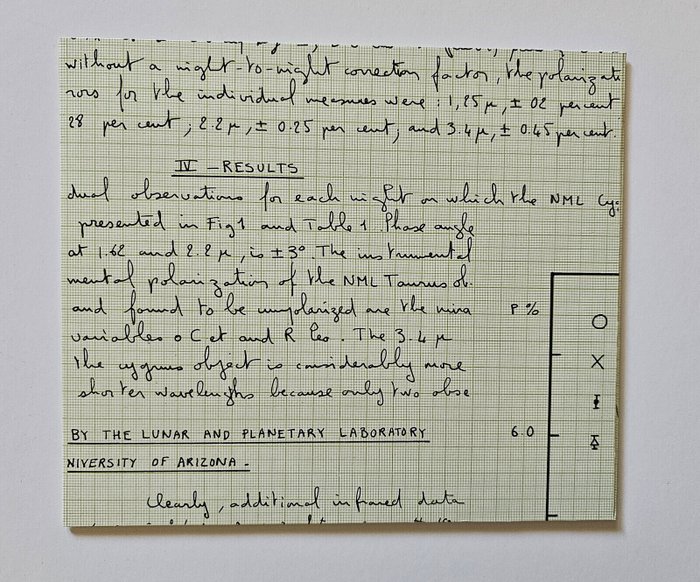 without a night-to-night correction factor, the polarizati
rors for the individual measures were : 1,25 μ, ± 02 percent
28 per cent ; 2.2 μ, ± 0.25 per cent, and 3.4 μ, ± 0.45 per cent.
IV - RESULTS
dual observations for each night on which the NML Cyg
presented in Fig 1 and Table 1. Phase angle
at 1.62 and 2.2 μ, is ± 3°. The instrumental
mental polarization of the NML Taurus ob.
and found to be unpolarized are the mira
variables o Cet and R Leo. The 3.4 μ
P %
the cygnus object is considerably more
shorter wavelengths because only two obse
BY THE LUNAR AND PLANETARY LABORATORY
6.0
NIVERSITY OF ARIZONA.
Clearly, additional infrared data